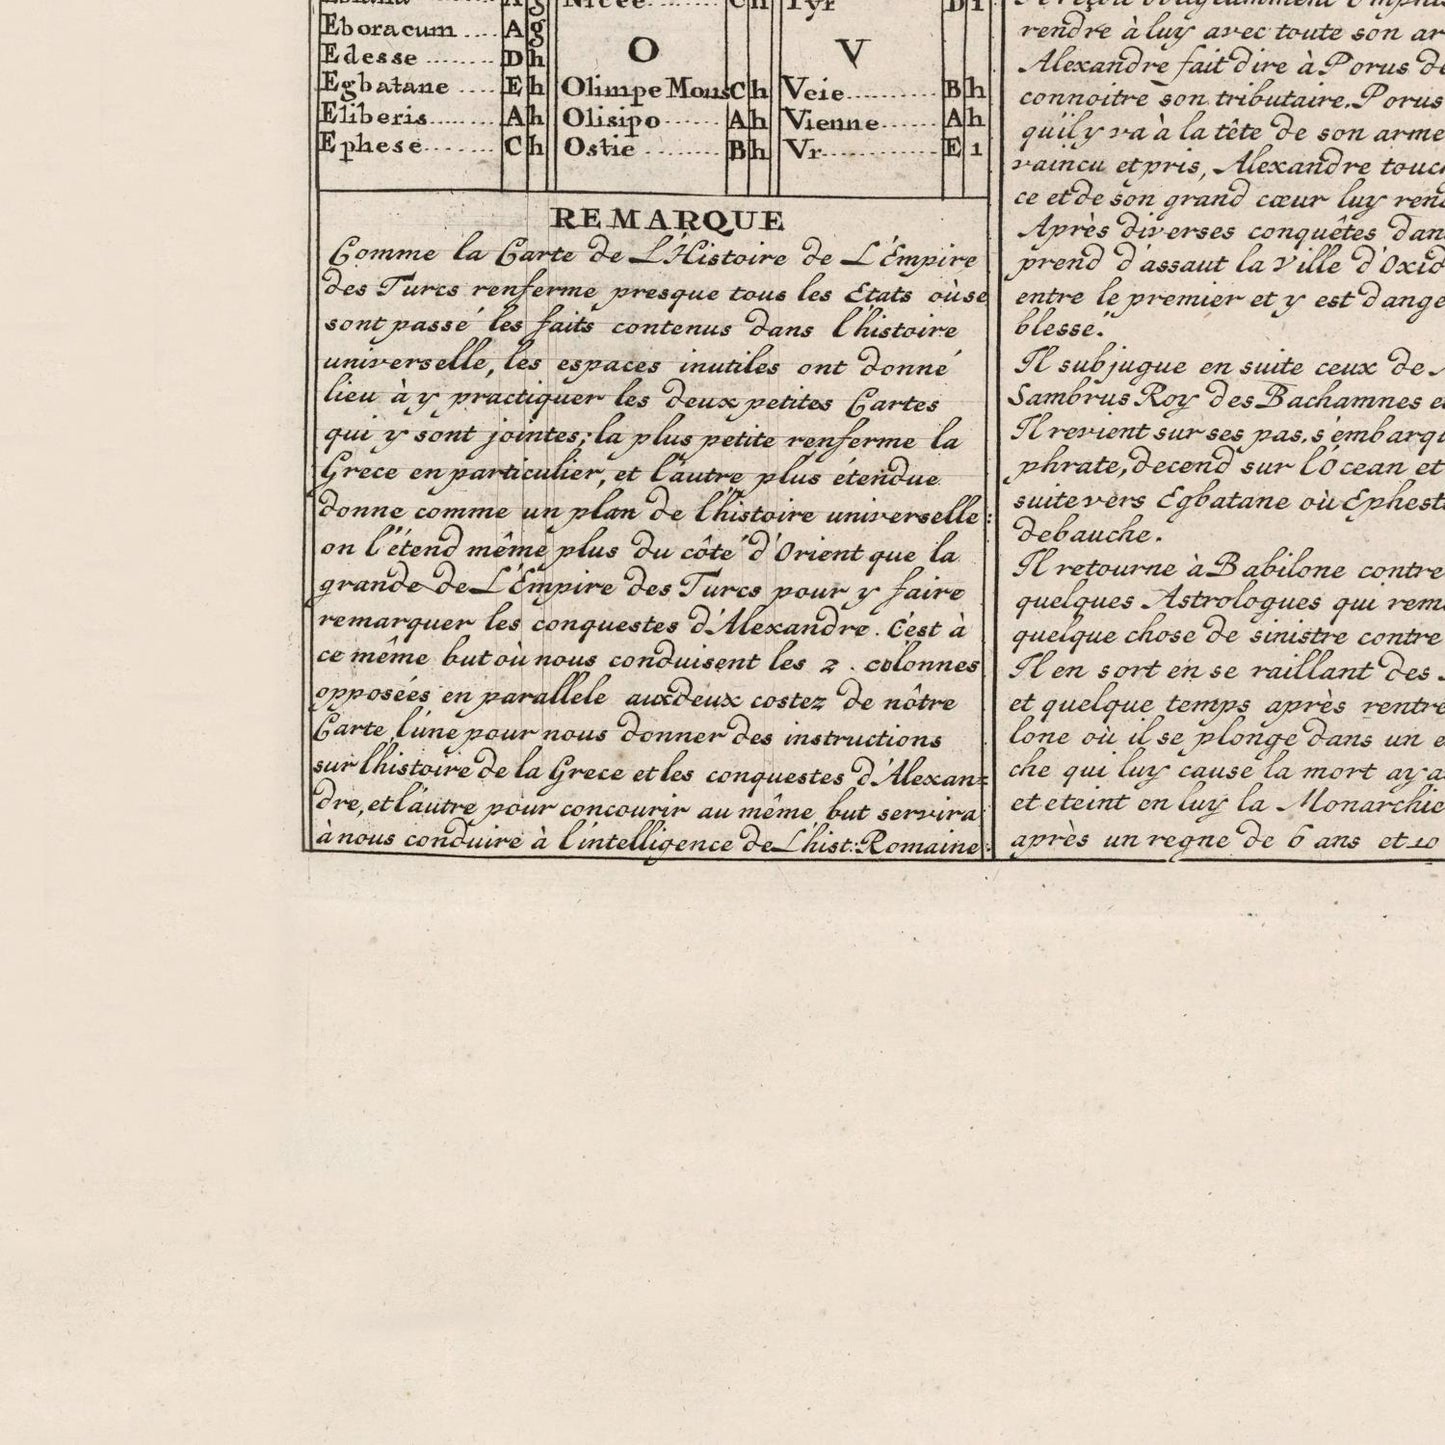 Eboracum .... A g
Edesse ........ D h
Egbatane .... E h
Eliberis ........ A h
Ephese ........ C h
Nicée ........ C h
O
Olimpe Mons C h
Olisipo ...... A h
Ostie ........ B h
Tyr D i
V
Veie .......... B h
Vienne ...... A h
Vr ............ E i
REMARQUE
Comme la Carte de L'Histoire de L'Empire
des Turcs renferme presque tous les Etats où se
sont passé les faits contenus dans l'histoire
universelle, les espaces inutiles ont donné
lieu à y practiquer les deux petites Cartes
qui y sont jointes; la plus petite renferme la
Grece en particulier, et l'autre plus étendue
donne comme un plan de l'histoire universelle:
on l'étend même plus du côté d'Orient que la
grande de L'Empire des Turcs pour y faire
remarquer les conquestes d'Alexandre. C'est à
ce même but où nous conduisent les 2. colonnes
opposées en parallele aux deux costez de nôtre
Carte l'une pour nous donner des instructions
sur l'histoire de la Grece et les conquestes d'Alexan=
dre, et l'autre pour concourir au même but servira
à nous conduire à l'intelligence de L'hist: Romaine:
rendre à luy avec toute son ar
Alexandre fait dire à Porus de
connoitre son tributaire. Porus
qu'il y va à la tête de son arme
vaincu et pris, Alexandre touc
ce et de son grand cœur luy ren
Après diverses conquêtes dan
prend d'assaut la Ville d'Oxid
entre le premier et y est dange
blessé.
Il subjugue en suite ceux de
Sambrus Roy des Bachamnes e
Il revient sur ses pas, s'embarqu
phrate, decend sur l'Ocean et
suite vers Egbatane où Ephest
debauche.
Il retourne à Babilone contre
quelques Astrologues qui rem
quelque chose de sinistre contre
Il en sort en se raillant des
et quelque temps après rentre
lone où il se plonge dans un e
che qui luy cause la mort aya
et eteint en luy la Monarchie
après un regne de 6 ans et 10